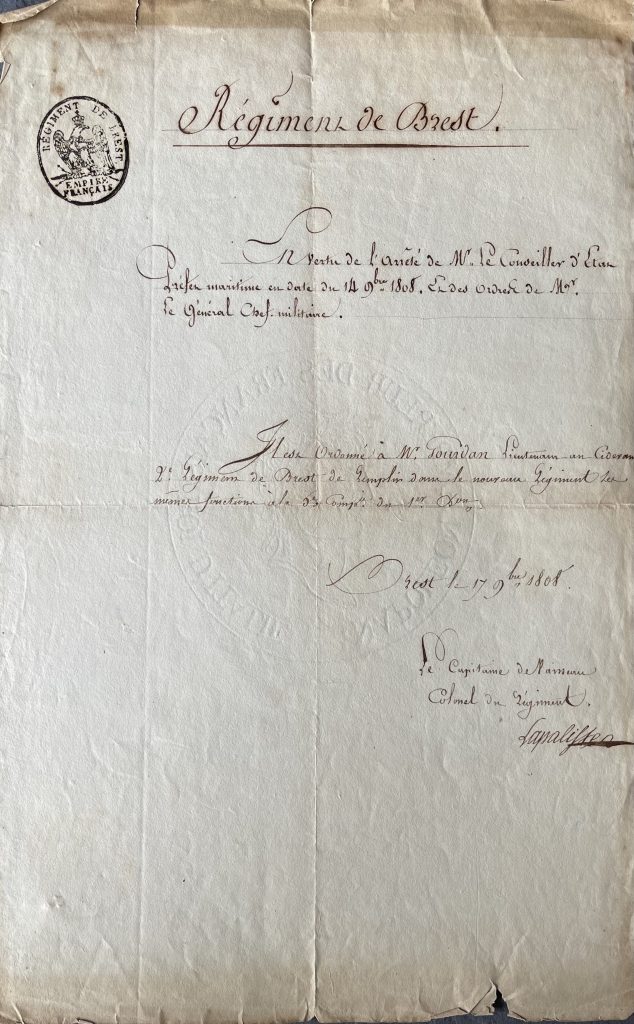 RÉGIMENT DE BREST
EMPIRE
FRANÇAIS
Régiment de Brest.
En vertu de l'Arrêté de Mr. Le Conseiller d'Etat
Préfet maritime en date du 14 9bre 1808. Et des Ordres de Mgr.
Le Général Chef militaire.
Il est Ordonné à Mr. Jourdan Lieutenant au Cidevant
2e. Régiment de Brest de Remplir dans le nouveau Régiment les
mêmes fonctions à la Compie. du 1er. Bon
Brest le 17 9bre 1808.
Le Capitaine de Vaisseau
Colonel du Régiment.
Lapalisse
NAPOLEON EMPEREUR DES FRANÇAIS